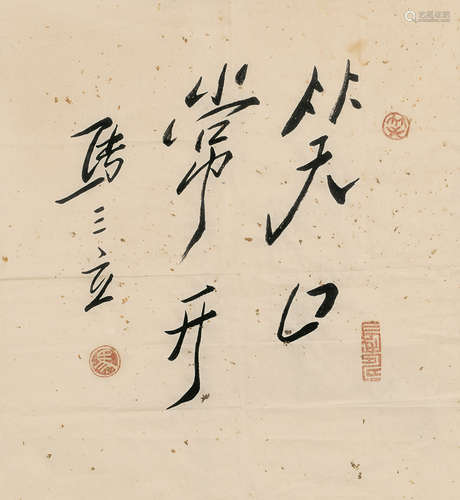 笑口
常开
馬三立